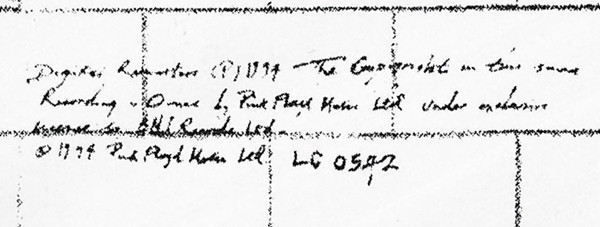 Digital Remasters (P) 1994 The Copyright in this sound
Recording is Owned by Pink Floyd Music Ltd under exclusive
licence to EMI Records Ltd.
© 1994 Pink Floyd Music Ltd LC 0542